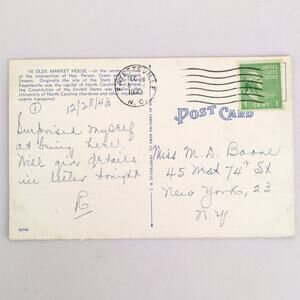 YE OLDE MARKET HOUSE—In the center
at the intersection of Hay, Person, Green and
Streets. Originally the site of the State
Fayetteville was the capital of North Carolina
the Constitution of the United States was
University of North Carolina chartered and other important
events transpired.
FAYETTEVILLE
N.C.
1 CENT 1
POST CARD
①
12/28/43
Surprised myself
at being here.
Will give details
in letter tonight
R
Miss M. A. Boone
45 West 74th St
New York, 23
N.Y.